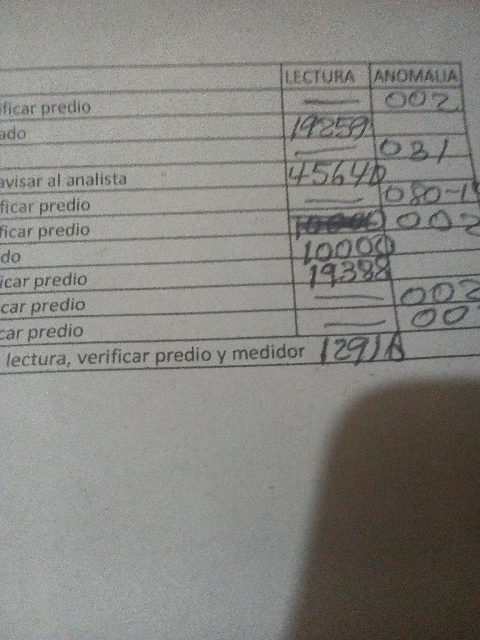 LECTURA ANOMALIA
ificar predio — 002
ado 19259
— 081
avisar al analista 45640
ficar predio — 080-1
ficar predio 002
do 10000
icar predio 19388
car predio — 002
car predio — 00
lectura, verificar predio y medidor